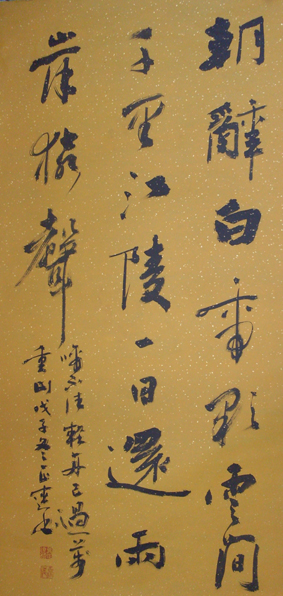 朝辭白帝彩雲間
千里江陵一日還兩
岸猿聲
啼不住輕舟已過萬
重山戊子冬